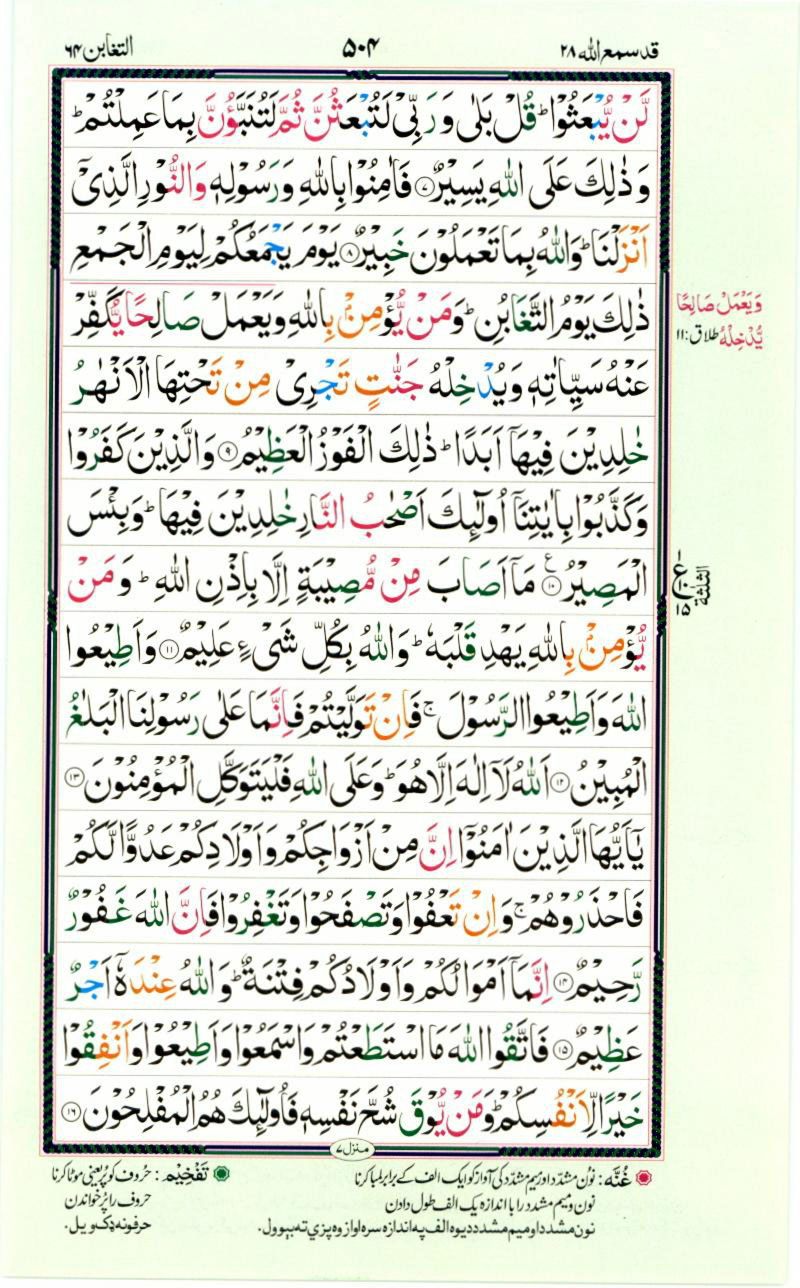 قد سمع الله ۲۸
۵۰۴
التغابن ۶۴
لَّنْ یُّبْعَثُوْا ؕ قُلْ بَلٰی وَ رَبِّیْ لَتُبْعَثُنَّ ثُمَّ لَتُنَبَّؤُنَّ بِمَا عَمِلْتُمْ ؕ
وَ ذٰلِكَ عَلَی اللّٰهِ یَسِیْرٌ ۷ فَاٰمِنُوْا بِاللّٰهِ وَ رَسُوْلِهٖ وَ النُّوْرِ الَّذِیْۤ
اَنْزَلْنَا ؕ وَ اللّٰهُ بِمَا تَعْمَلُوْنَ خَبِیْرٌ ۸ یَوْمَ یَجْمَعُكُمْ لِیَوْمِ الْجَمْعِ
ذٰلِكَ یَوْمُ التَّغَابُنِ ؕ وَ مَنْ یُّؤْمِنْۢ بِاللّٰهِ وَ یَعْمَلْ صَالِحًا یُّكَفِّرْ
عَنْهُ سَیِّاٰتِهٖ وَ یُدْخِلْهُ جَنّٰتٍ تَجْرِیْ مِنْ تَحْتِهَا الْاَنْهٰرُ
خٰلِدِیْنَ فِیْهَاۤ اَبَدًا ؕ ذٰلِكَ الْفَوْزُ الْعَظِیْمُ ۹ وَ الَّذِیْنَ كَفَرُوْا
وَ كَذَّبُوْا بِاٰیٰتِنَاۤ اُولٰٓئِكَ اَصْحٰبُ النَّارِ خٰلِدِیْنَ فِیْهَا ؕ وَ بِئْسَ
الْمَصِیْرُ ۱۰ ع مَاۤ اَصَابَ مِنْ مُّصِیْبَةٍ اِلَّا بِاِذْنِ اللّٰهِ ؕ وَ مَنْ
یُّؤْمِنْۢ بِاللّٰهِ یَهْدِ قَلْبَهٗ ؕ وَ اللّٰهُ بِكُلِّ شَیْءٍ عَلِیْمٌ ۱۱ وَ اَطِیْعُوا
اللّٰهَ وَ اَطِیْعُوا الرَّسُوْلَ ۚ فَاِنْ تَوَلَّیْتُمْ فَاِنَّمَا عَلٰی رَسُوْلِنَا الْبَلٰغُ
الْمُبِیْنُ ۱۲ اَللّٰهُ لَاۤ اِلٰهَ اِلَّا هُوَ ؕ وَ عَلَی اللّٰهِ فَلْیَتَوَكَّلِ الْمُؤْمِنُوْنَ ۱۳
یٰۤاَیُّهَا الَّذِیْنَ اٰمَنُوْۤا اِنَّ مِنْ اَزْوَاجِكُمْ وَ اَوْلَادِكُمْ عَدُوًّا لَّكُمْ
فَاحْذَرُوْهُمْ ۚ وَ اِنْ تَعْفُوْا وَ تَصْفَحُوْا وَ تَغْفِرُوْا فَاِنَّ اللّٰهَ غَفُوْرٌ
رَّحِیْمٌ ۱۴ اِنَّمَاۤ اَمْوَالُكُمْ وَ اَوْلَادُكُمْ فِتْنَةٌ ؕ وَ اللّٰهُ عِنْدَهٗۤ اَجْرٌ
عَظِیْمٌ ۱۵ فَاتَّقُوا اللّٰهَ مَا اسْتَطَعْتُمْ وَ اسْمَعُوْا وَ اَطِیْعُوْا وَ اَنْفِقُوْا
خَیْرًا لِّاَنْفُسِكُمْ ؕ وَ مَنْ یُّوْقَ شُحَّ نَفْسِهٖ فَاُولٰٓئِكَ هُمُ الْمُفْلِحُوْنَ ۱۶
وَیَعْمَلْ صَالِحًا
یُّدْخِلْهُ طلاق: ۱۱
ع
۱۵
الثلثة
منزل ۷
غُنَّه: نون مشدد اور میم مشدد کی آواز کو ایک الف کے برابر لمبا کرنا
نون و میم مشدد را با اندازه یک الف طول دادن
نون مشدد او میم مشدد دیوه الف په اندازه سره اواز وه پزي ته بېوول.
تَفْخِیْم: حُروف کو پُر یعنی موٹا کرنا
حروف را پُر خواندن
حرفونه ډک ویل.